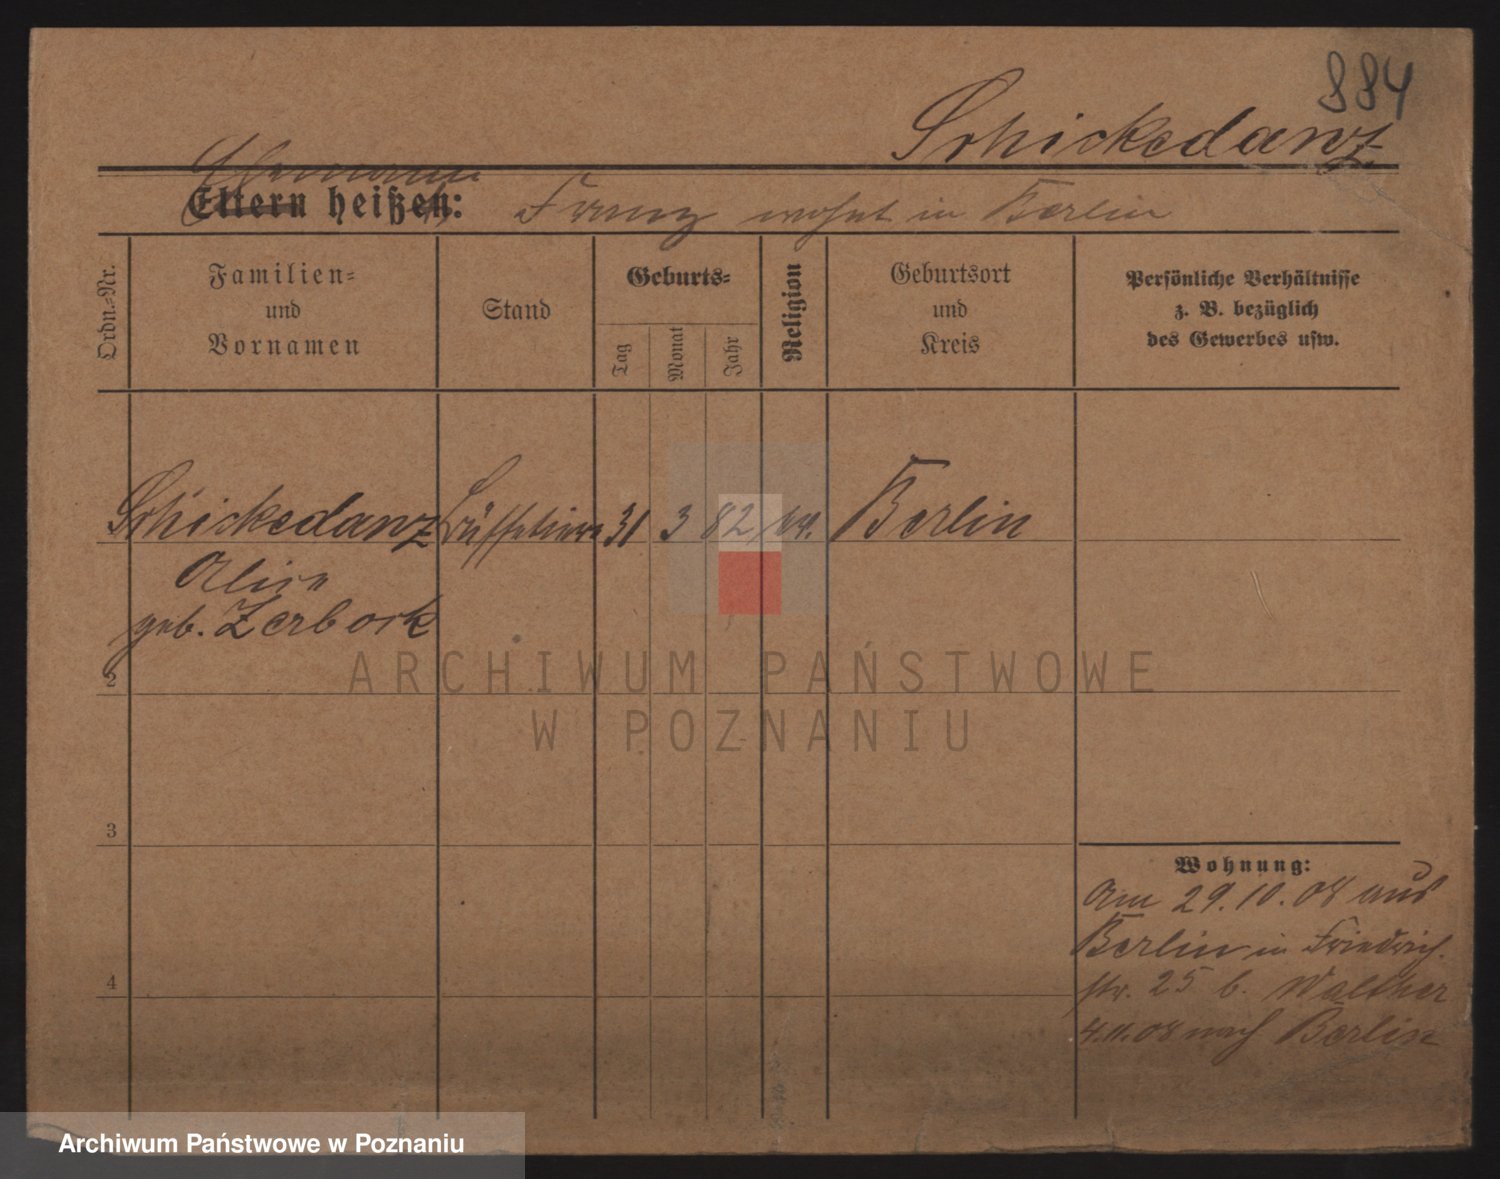 884
Schickedanz
Ehemann
Eltern heißen: Franz wohnt in Berlin
Ordn.-Nr.
Familien-
und
Vornamen
Stand
Geburts-
Tag
Monat
Jahr
Religion
Geburtsort
und
Kreis
Persönliche Verhältnisse
z. B. bezüglich
des Gewerbes usw.
Schickedanz 31 3 82 ev. Berlin
Alice
geb. Zerbock
2
3
4
Wohnung:
Am 29.10.08 aus
Berlin in Friedrich-
str. 25 b. Walther
4.11.08 nach Berlin
ARCHIWUM PAŃSTWOWE
W POZNANIU
Archiwum Państwowe w Poznaniu